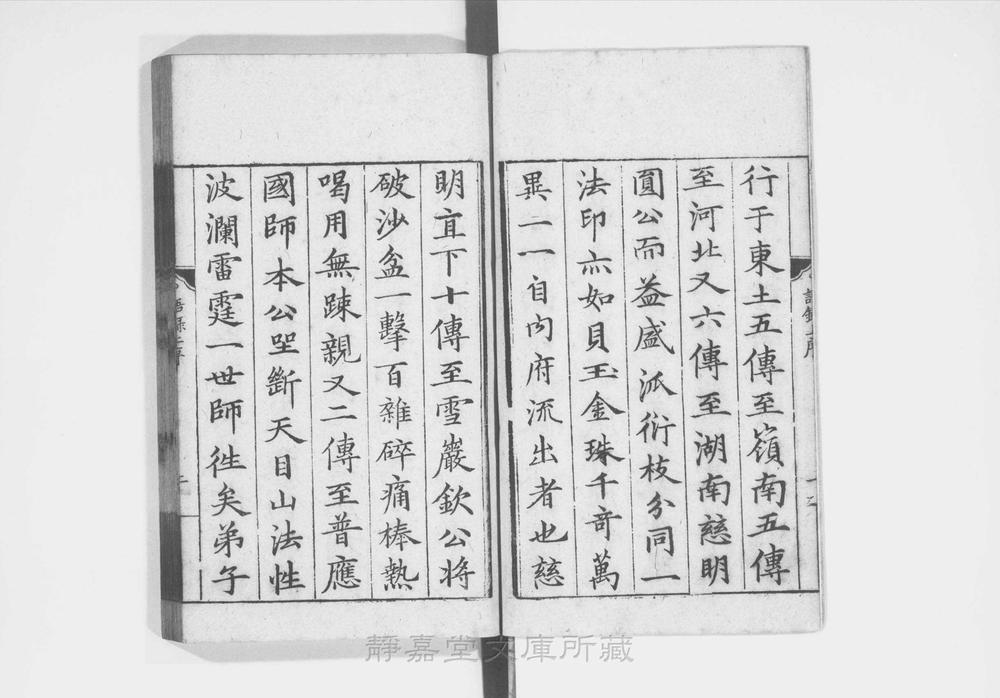 行于東土五傳至嶺南五傳
至河北又六傳至湖南慈明
圓公而益盛派衍枝分同一
法印亦如貝玉金珠千竒萬
異一一自內府流出者也慈
明直下十傳至雪巖欽公將
破沙盆一擊百雜碎痛棒熱
喝用無踈親又二傳至普應
國師本公坐斷天目山法性
波瀾雷霆一世師徃矣弟子
語録上序
靜嘉堂文庫所藏